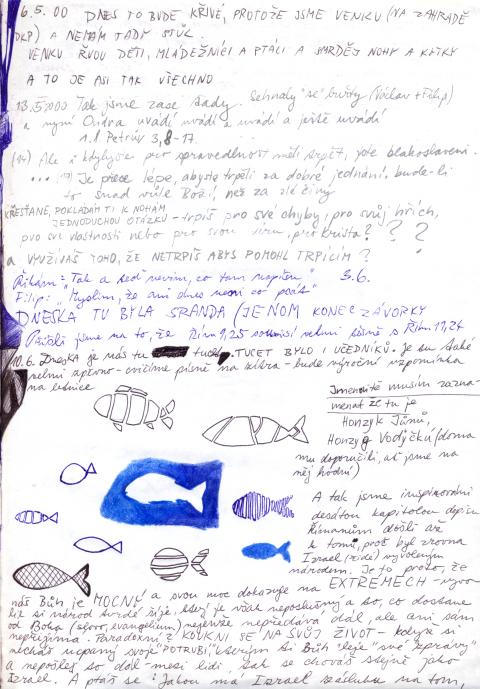 6.5.00 DNES TO BUDE KŘIVÉ, PROTOŽE JSME VENKU (NA ZAHRADĚ
DKP) A NEMÁM TADY STŮL.
VENKU ŘVOU DĚTI, MLÁDEŽNÍCI A PTÁCI A SMRDĚJ NOHY A KYTKY
A TO JE ASI TAK VŠECHNO
13.5.2000 Tak jsme zase tady. Sehnaly "se" buřty (Václav + Filip)
a nyní Ondra uvádí uvádí a uvádí a ještě uvádí
1.1 Petrův 3,8-17.
(14) Ale i kdybyste pro spravedlnost měli trpět, jste blahoslaveni.
... (17) Je přece lépe, abyste trpěli za dobré jednání, bude-li
to snad vůle Boží, než za zlé činy
KŘESŤANE, POKLÁDÁM TI K NOHÁM
JEDNODUCHOU OTÁZKU - trpíš pro své chyby, pro svůj hřích,
pro své vlastnosti nebo pro svou víru, pro Krista? ? ?
A VYUŽÍVÁŠ TOHO, ŽE NETRPÍŠ ABYS POMOHL TRPÍCÍM?
Říkám: "Tak a teď nevím, co tam napíšu" 3.6.
Filip: "Myslím, že ani dnes není co psát"
DNESKA TU BYLA SRANDA (JENOM KONEC ZÁVORKY
Přišli jsme na to, že Řím 9,25 souvisí velmi těsně s Řím 11,24
10.6. Dneska je nás tu tucet. TUCET BYLO I UČEDNÍKŮ. Je to také
velmi zpěvno - cvičíme písně na zítra - bude výroční vzpomínka
na letnice
Jmenovitě musím zazna-
menat že tu je
Honzyk Jůnů,
Honzyg Vodyčků (doma
mu doporučili, ať jsme na
něj hodní)
A tak jsme inspirováni
desátou kapitolou dopisu
Římanům došli až
k tomu, proč byl zrovna
Izrael (židé) vyvoleným
národem. Je to proto, že
náš Bůh je MOCNÝ a svou moc dokazuje na EXTRÉMECH - vyvo-
lil si národ tvrdé šíje, který je však neposlušný a to, co dostane
od Boha (slovo, evangelium) nejenže nepředává dál, ale ani sám
nepřijímá. Paradoxní? KOUKNI SE NA SVŮJ ŽIVOT - kolik si
necháš ucpaný svoje "POTRUBÍ" kterým ti Bůh leje "své zprávy"
a nepošleš to dál - mezi lidi, tak se chováš stejně jako
Izrael. A ptáš se: Jakou má Izrael zásluhu na tom,